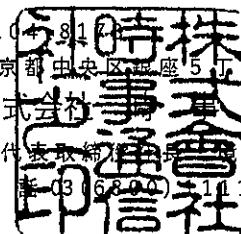 04 8178
京都中央区銀座5丁
式会社
代表取締役 長 境
03(6800) 111
株式會社
時事通信
社之印